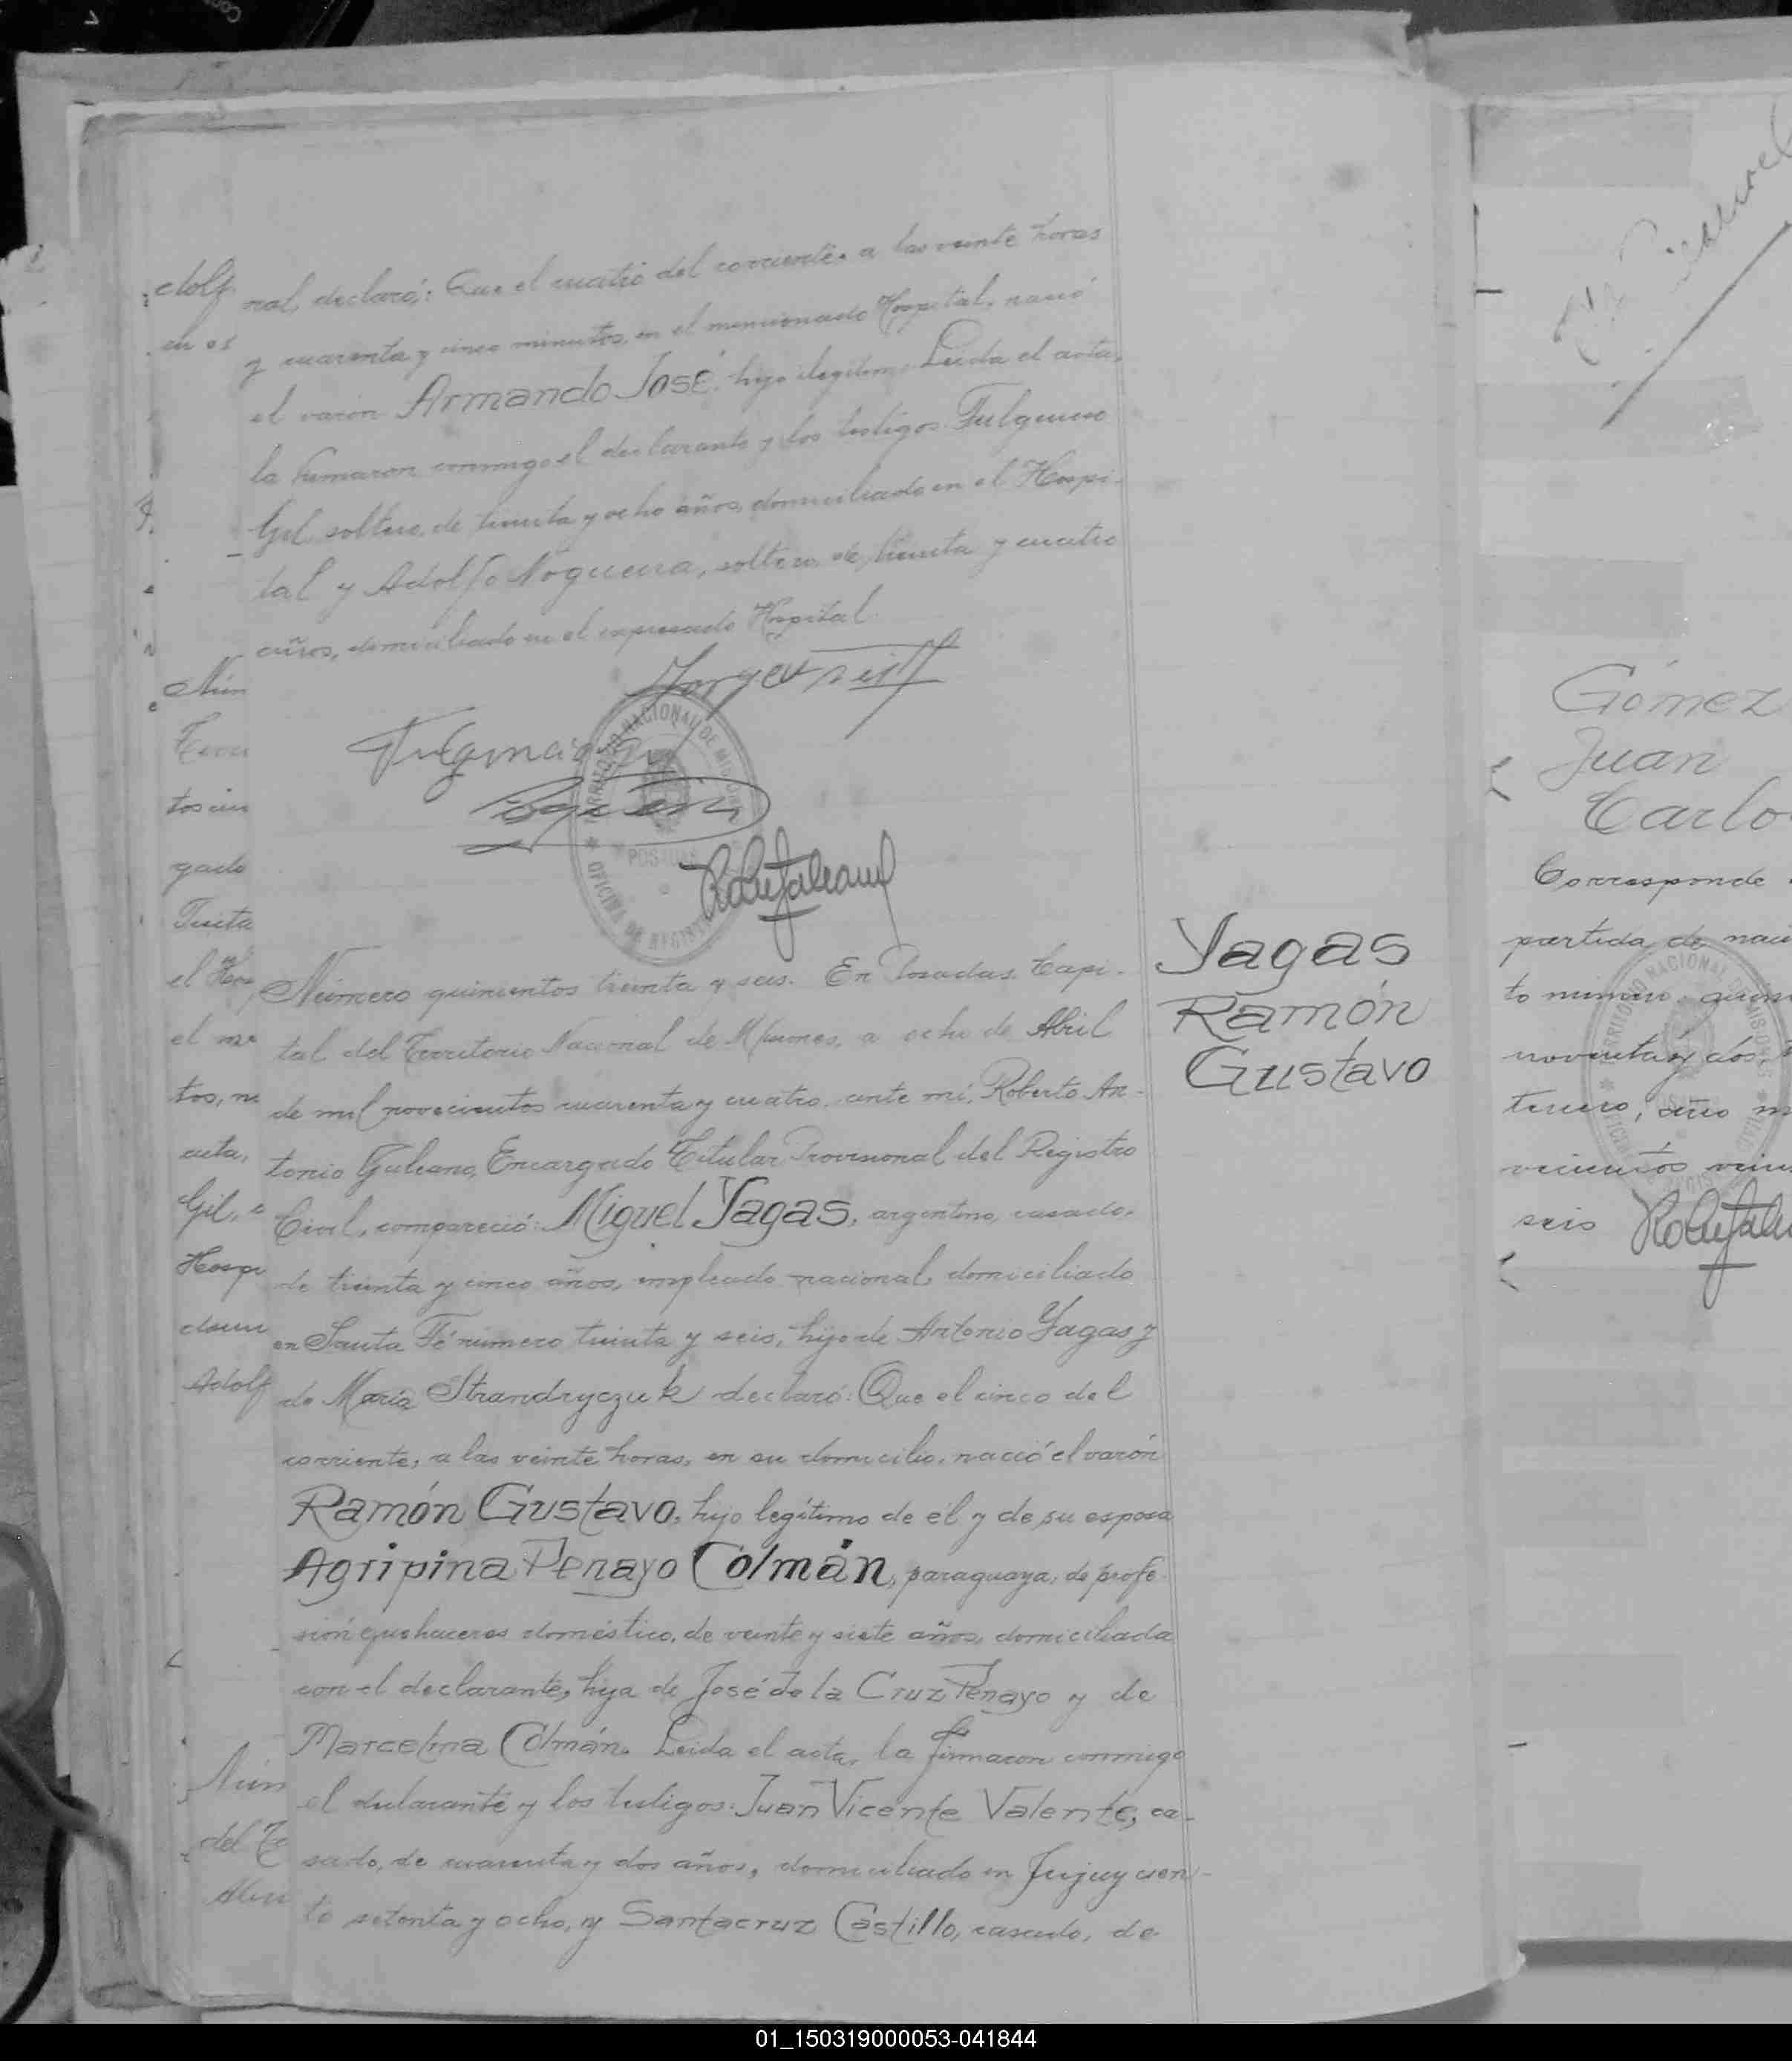 nal, declaró: Que el cuatro del corriente, a las veinte horas
y cuarenta y cinco minutos, en el mencionado Hospital, nació
el varón Armando José, hijo ilegítimo. Leida el acta,
la firmaron conmigo el declarante y los testigos Fulgencio
Gil, soltero, de treinta y ocho años, domiciliado en el Hospi-
tal y Adolfo Nogueira, soltero, de treinta y cuatro
años, domiciliado en el expresado Hospital.
TERRITORIO NACIONAL DE MISIONES
POSADAS
OFICINA DE REGISTRO
Yagas
Ramón
Gustavo
Número quinientos treinta y seis. En Posadas, Capi-
tal del Territorio Nacional de Misiones, a ocho de Abril
de mil novecientos cuarenta y cuatro, ante mí, Roberto An-
tonio Galeano, Encargado Titular Provisional del Registro
Civil, compareció: Miguel Yagas, argentino, casado,
de treinta y cinco años, empleado nacional, domiciliado
en Santa Fé número treinta y seis, hijo de Antonio Yagas y
de María Strandryczuk declaró: Que el cinco del
corriente, a las veinte horas, en su domicilio, nació el varón
Ramón Gustavo, hijo legítimo de él y de su esposa
Agripina Penayo Colmán, paraguaya, de profe-
sión quehaceres doméstico, de veinte y siete años, domiciliada
con el declarante, hija de José de la Cruz Penayo y de
Marcelina Colmán. Leida el acta, la firmaron conmigo
el declarante y los testigos: Juan Vicente Valente, ca-
sado, de cuarenta y dos años, domiciliado en Jujuy cien-
to setenta y ocho, y Santacruz Castillo, casado, de
Gómez
Juan
Carlo
Corresponde
partida de naci
to número quin
noventa y dos, t
tercero, año m
vecientos vein
seis
01_150319000053-041844